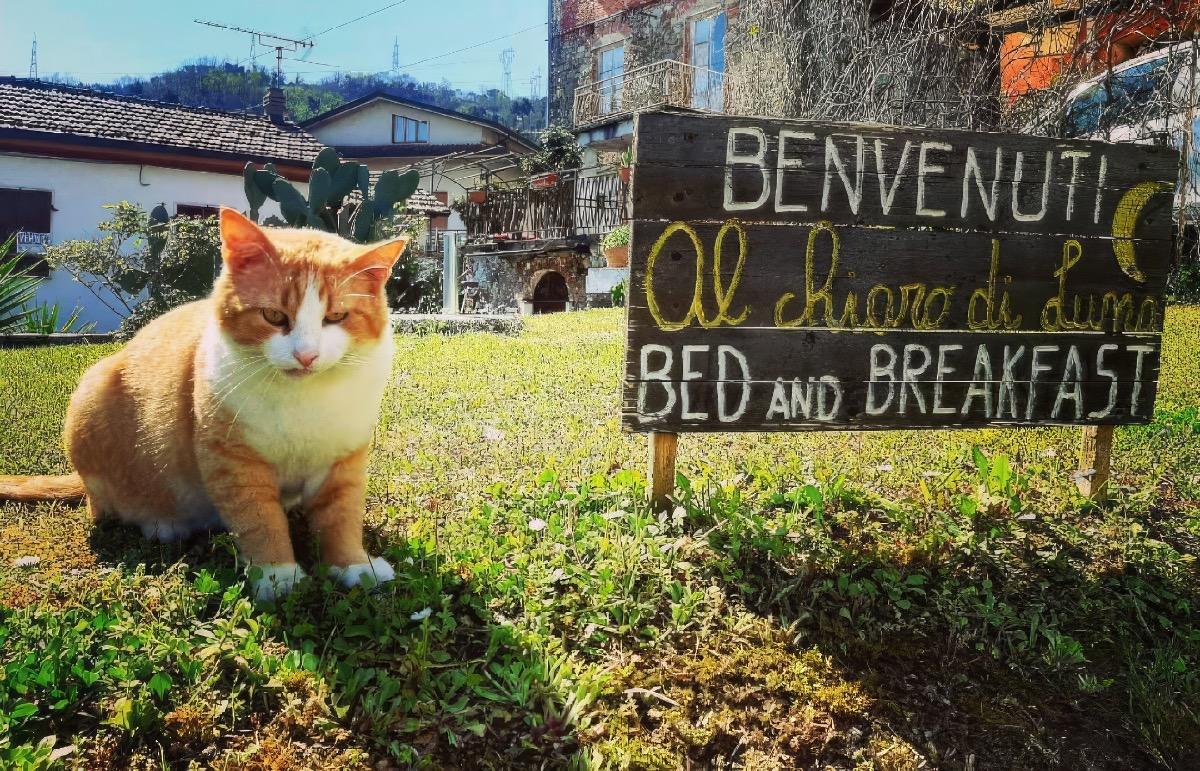 BENVENUTI
Al chiaro di Luna
BED AND BREAKFAST